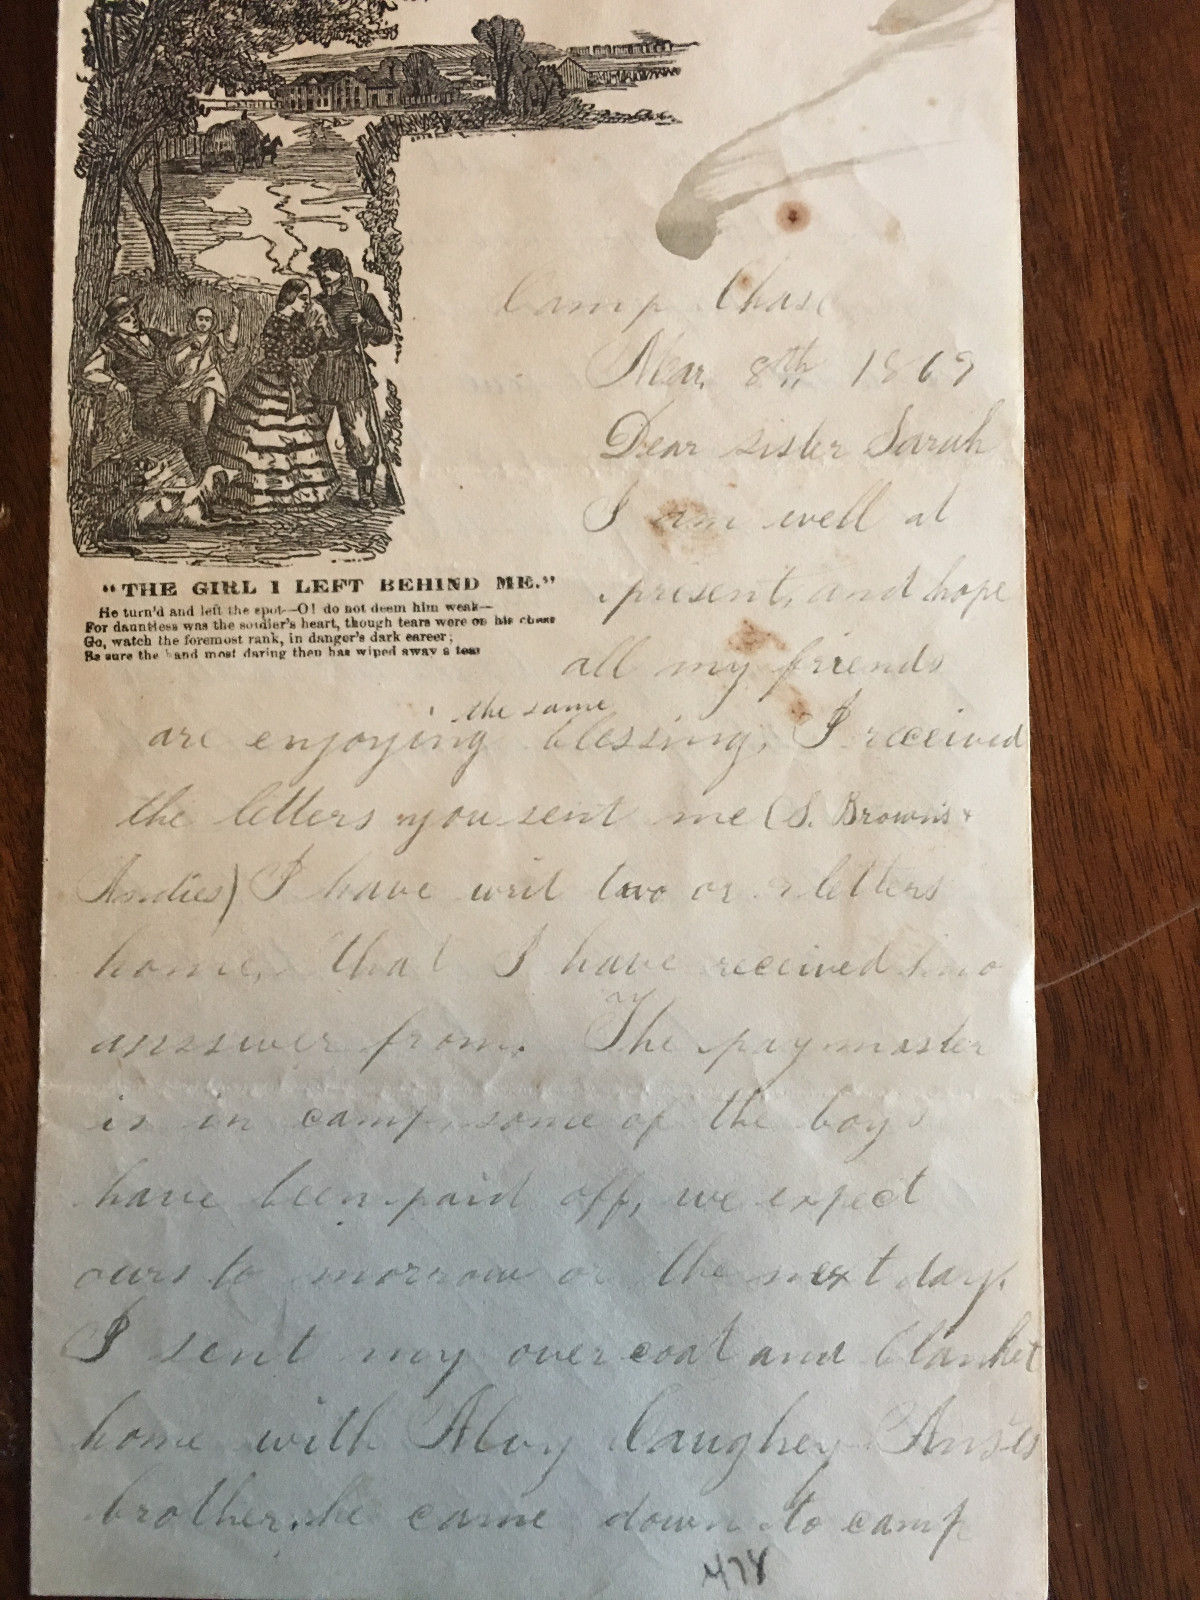 Camp Chase
Mar. 8th 1869
Dear sister Sarah
I am well at
present, and hope
all my friends
"THE GIRL I LEFT BEHIND ME."
He turn'd and left the spot—O! do not deem him weak—
For dauntless was the soldier's heart, though tears were on his cheek
Go, watch the foremost rank, in danger's dark career;
Be sure the hand most daring then has wiped away a tear
the same
are enjoying blessing, I received
the letters you sent me (S. Browns &
Andies) I have writ two or 3 letters
home, that I have received no
any
answer from. The paymaster
is in camp some of the boys
have been paid off, we expect
ours to morrow or the next day.
I sent my over coat and blanket
home with Aloy Caughey Anses
brother, he came down to camp
478